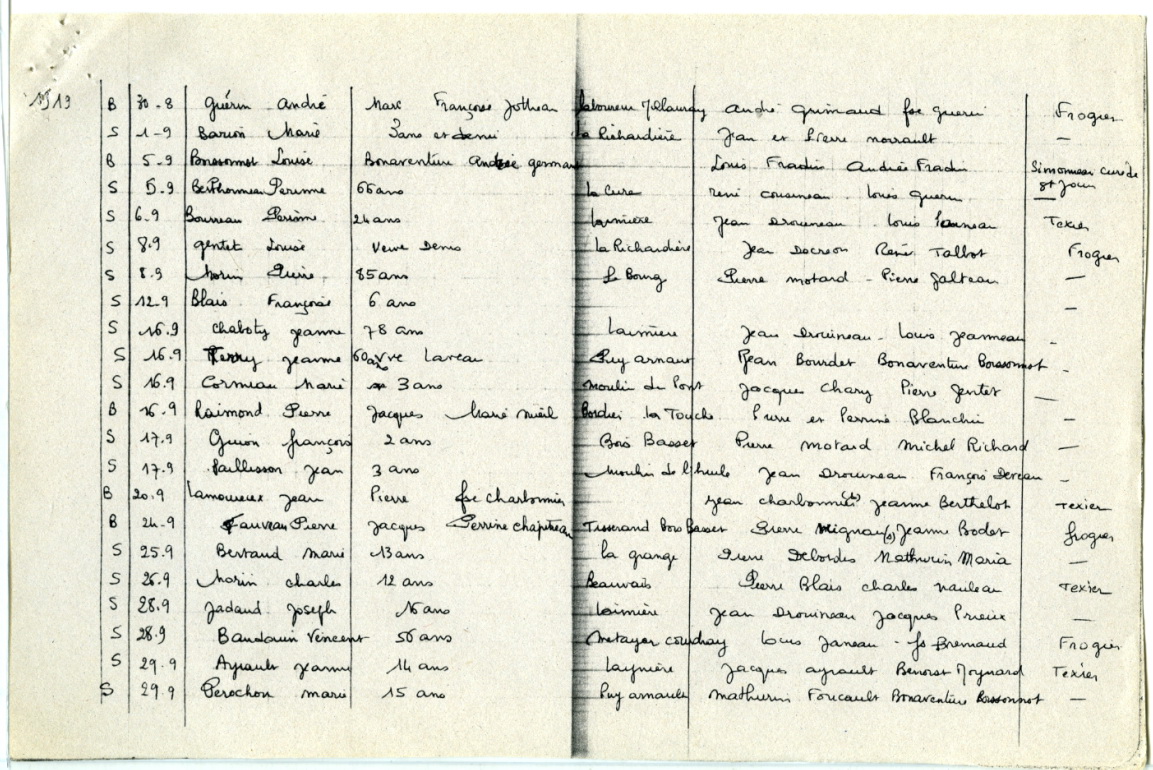 B 30-8 Guérin André Marc Françoise laboureur André Grimaud fse guerin Frogier
S 1-9 Marie 3 ans et demi la Richardière Jean et Pierre morrault —
B 5-9 Bonaventure Andrée germain Louis Fradin Andrée Fradin Simonneau curé de St Jouin
S 5.9 Perinne 66 ans la Cure rené cousineau louis guerin —
S 6.9 24 ans Jean Drouineau Louis Texier
S 8.9 gentet Louise Veuve Denis la Richardière Jean Decreon René Talbot Frogier
S 8.9 Morin 85 ans Le Bourg Pierre motard - Pierre Galteau —
S 12-9 Blais Françoise 6 ans —
S 16.9 chaboty jeanne 78 ans Laimière Jean Drouineau - Louis Jeanneau -
S 16.9 jeanne 60 ans vve Laveau Puy arnault Jean Bourdet Bonaventure Bossonnot -
S 16.9 Cormiau Marie 3 ans moulin du Pont Jacques Chary Pierre Gentet —
B 16.9 Raimond Pierre Jacques Marie Bordier la Touche Pierre et Perrine Blanchin —
S 17.9 Guion françois 2 ans Bois Basset Pierre Motard Michel Richard —
S 17.9 Paillisson Jean 3 ans Moulin de l'huile Jean Drouineau François —
B 20.9 Lamoureux Jean Pierre fse charbonnier Jean charbonnier (s) Jeanne Berthelot Texier
B 24-9 Fauveau Pierre Jacques Perrine chapiteau Tisserand Bois Basset Pierre Mignau (s) Jeanne Bodet frogier
S 25.9 Bertaud marie 13 ans la grange Pierre Debordes Mathurin Maria —
S 26.9 Morin charles 12 ans Beauvais Pierre Blais charles nauleau Texier
S 28.9 Jadaud Joseph 16 ans Laimière Jean Drouineau Jacques Prieux —
S 28.9 Baudouin Vincent 56 ans Metayer coudray Louis Janeau - fs Bremaud Frogier
S 29.9 Ayrault jeanne 14 ans Laymière Jacques ayrault Benoist Moynard Texier
S 29.9 Perochon marie 15 ans Puy arnault mathurin Foucault Bonaventure Bossonnot —